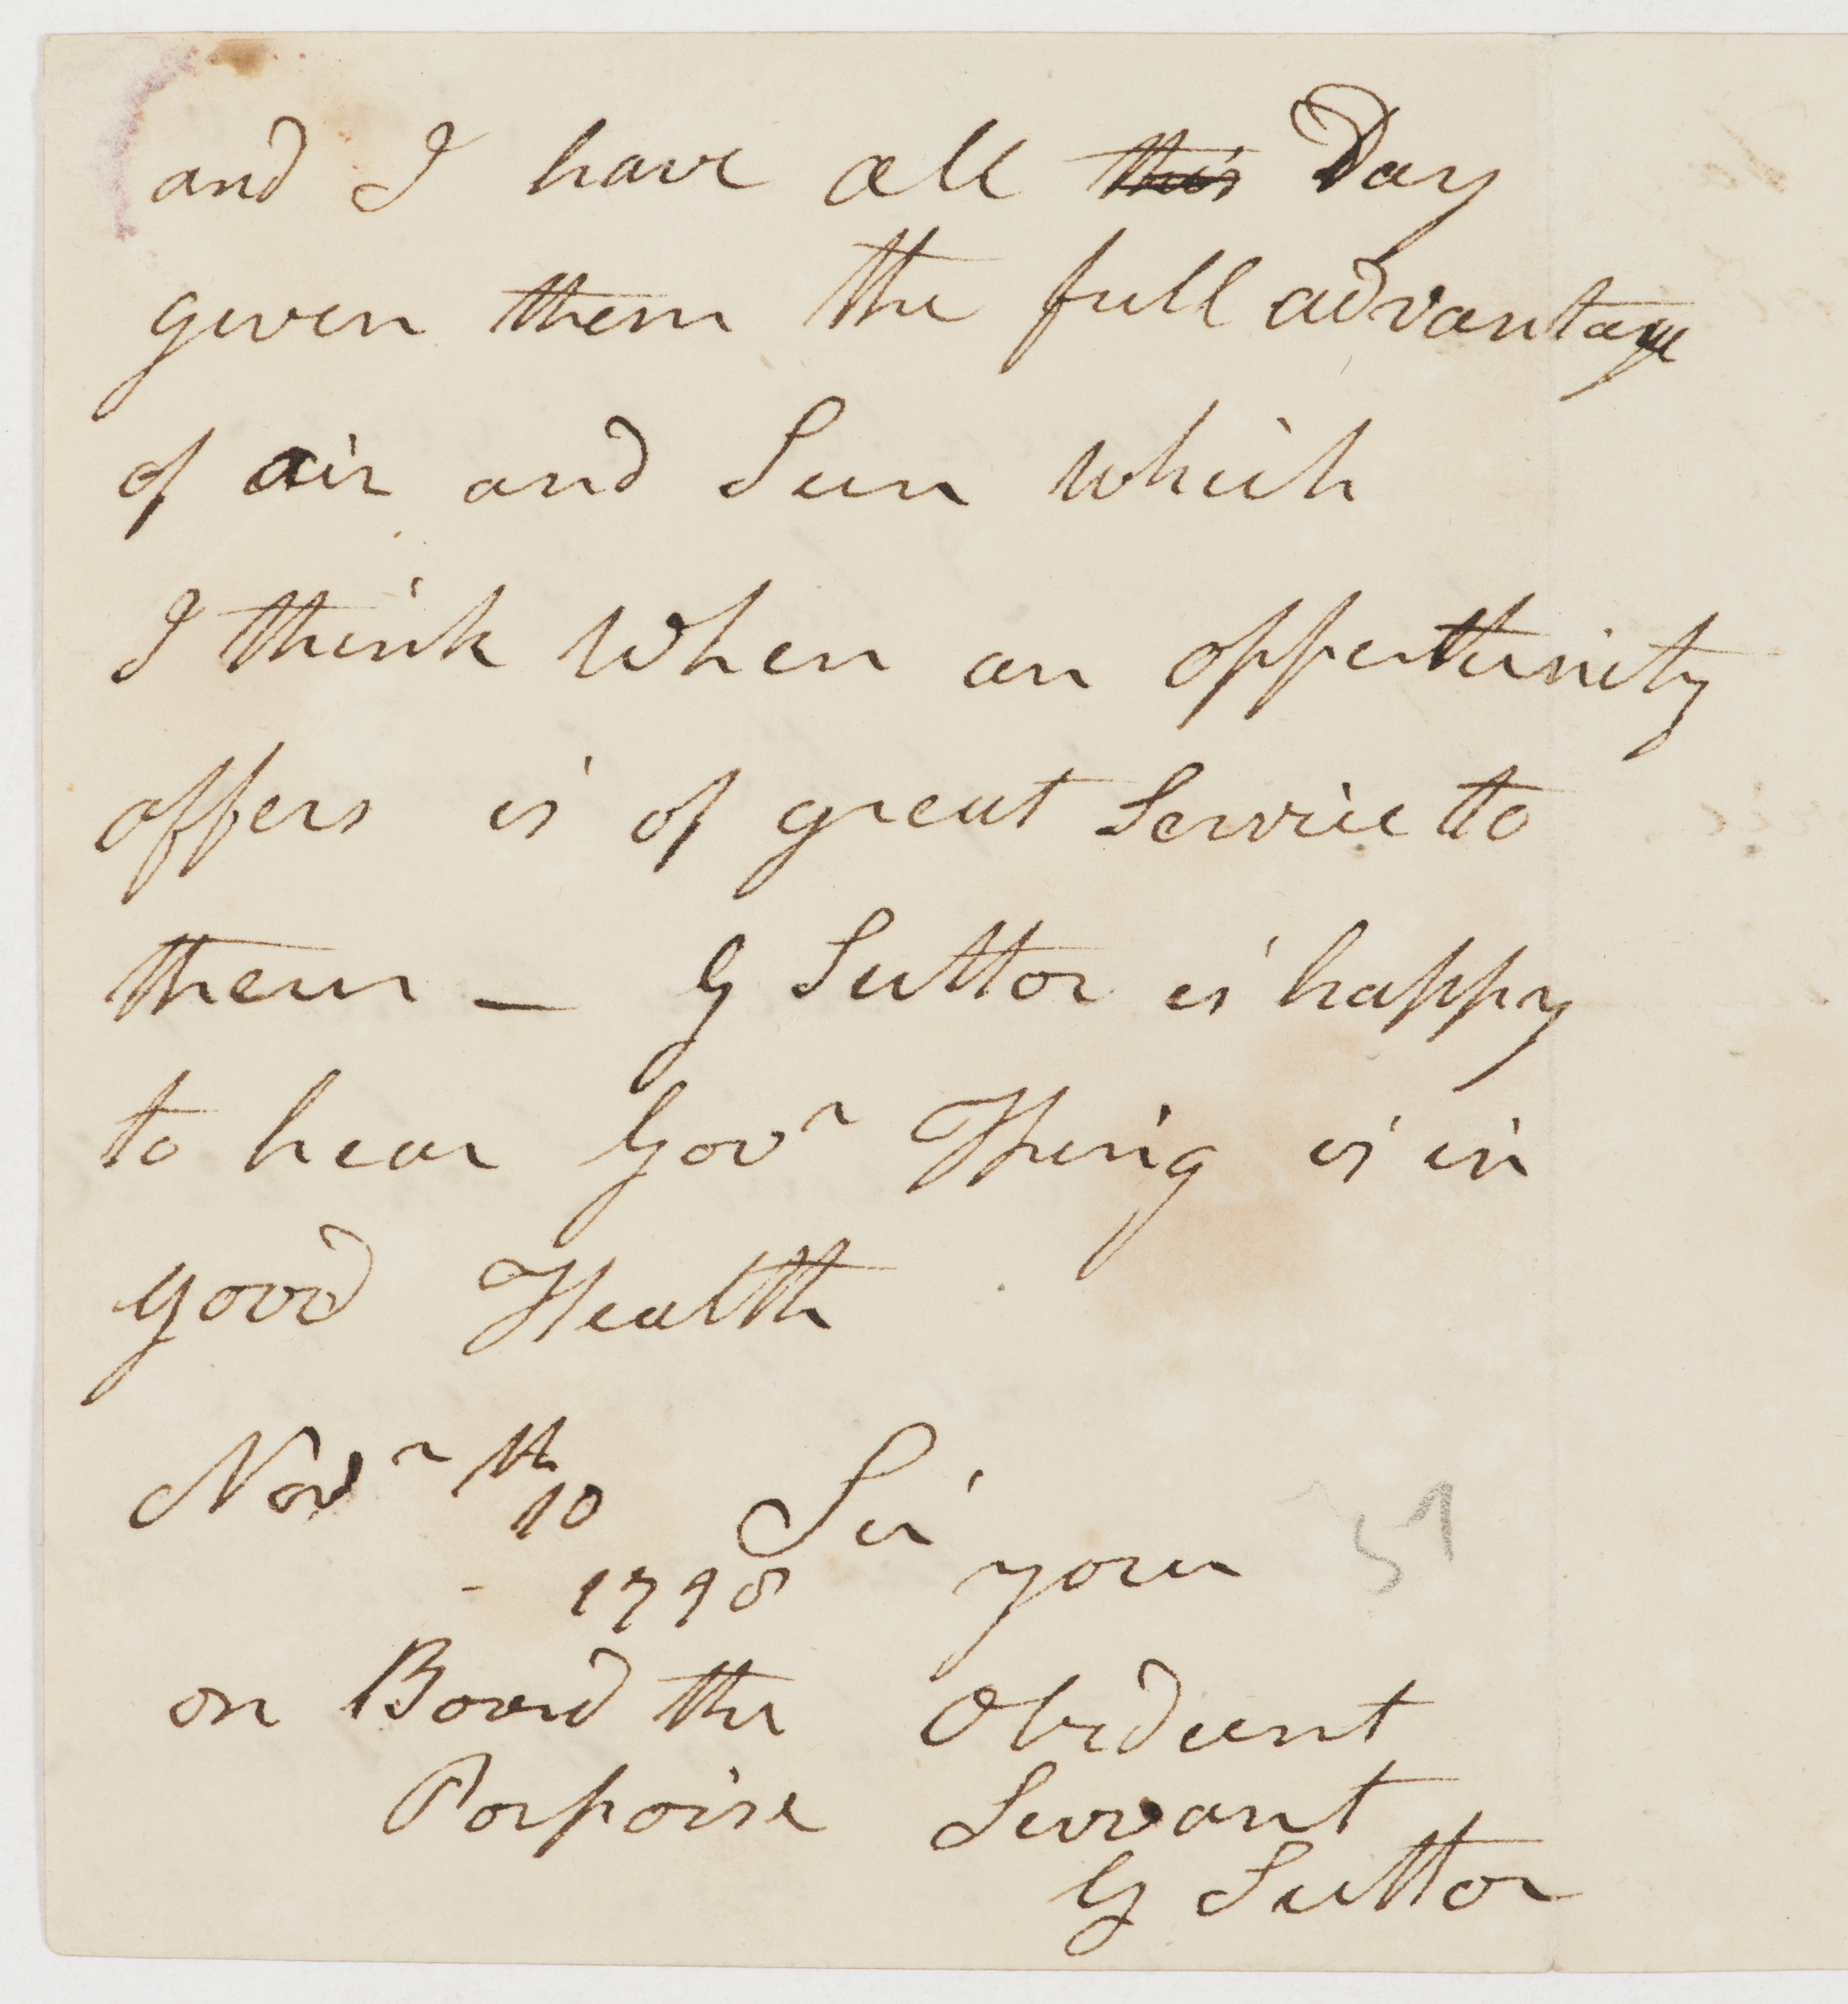 and I have all this Day
given them the full advantage
of air and Sun which
I think when an oppertunity
offers is of great Service to
them — G Suttor is happy
to hear Govr King is in
good Health
Novr 10th Sir
1798 your
on Board the Obedient
Porpoise Servant
G Suttor
51